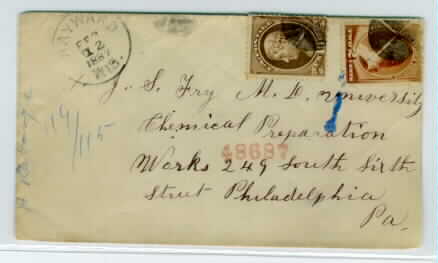 HAYWARD
FEB
12
1887
WIS.
J. S. Fry M. D. University
Chemical Preparation
Works 249 South Sixth
Street Philadelphia
Pa.
48687
119/115